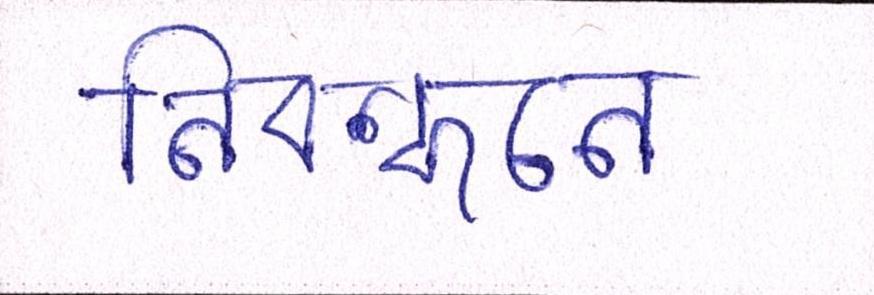 নিবন্ধনে